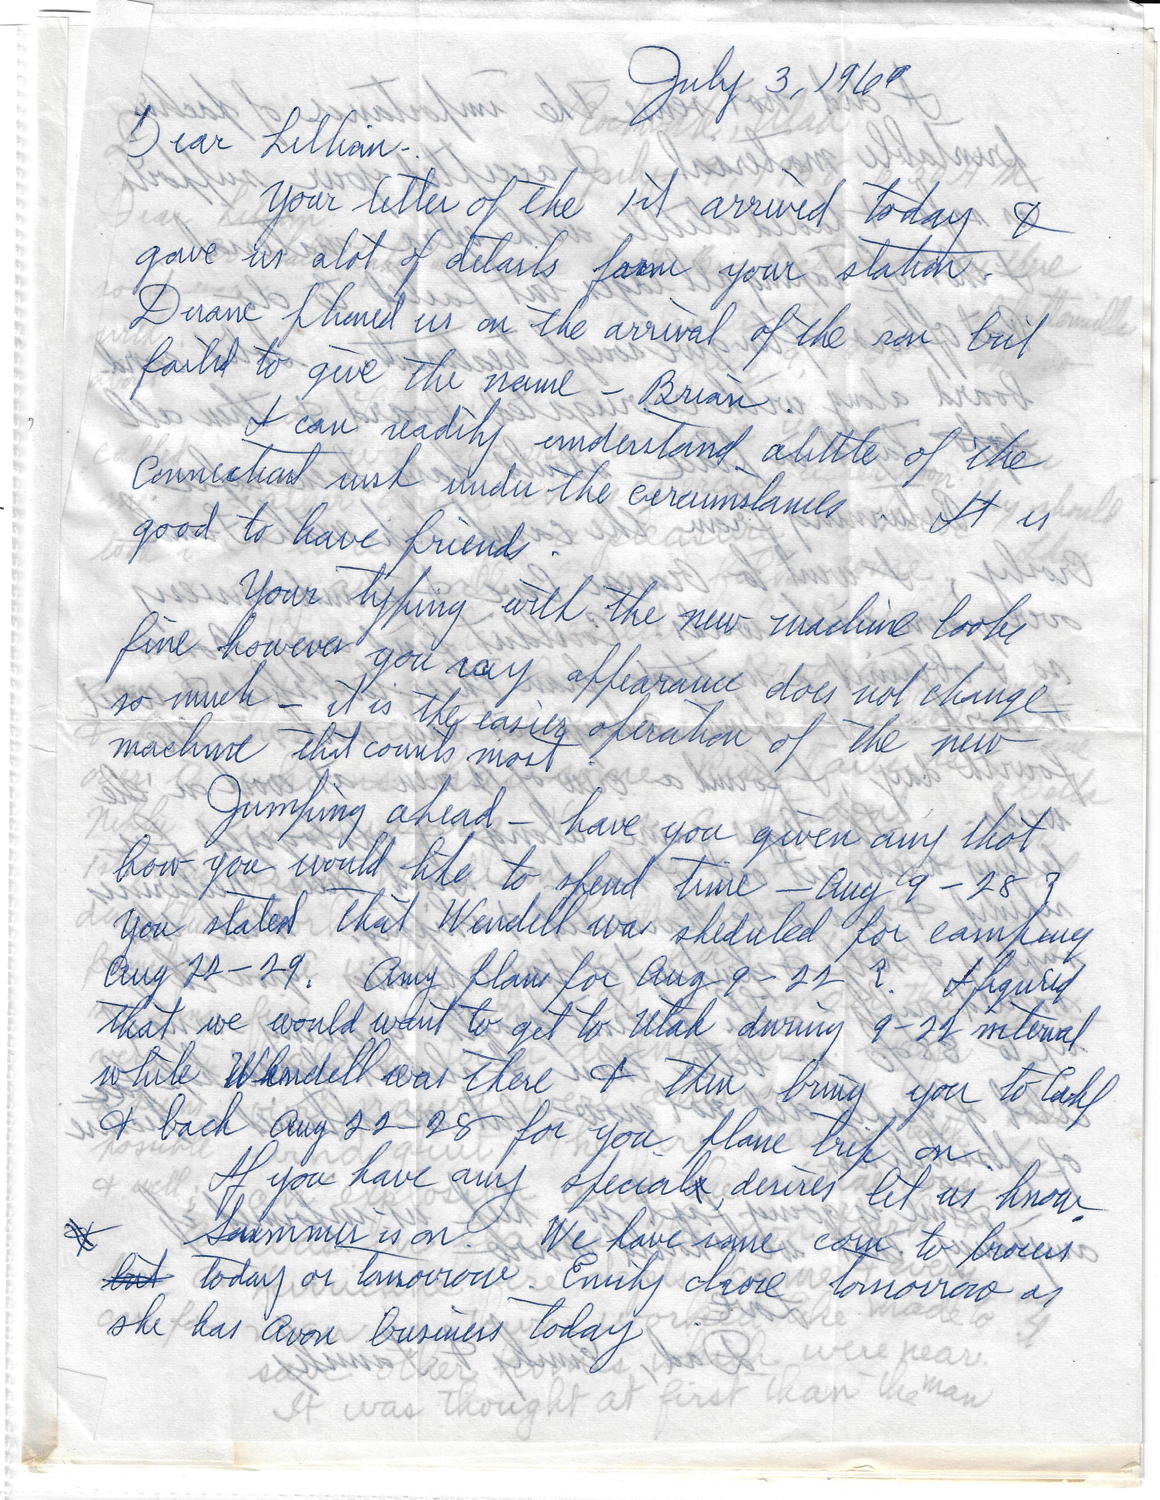 July 3, 1969
Dear Lillian-
Your letter of the 1st arrived today &
gave us alot of details from your station.
Duane phoned us on the arrival of the son but
faild to give the name - Brian.
I can readily understand alittle of the
Connecticut rush under the circumstances. It is
good to have friends.
Your typing with the new machine looks
fine however you say appearance does not change
so much - it is the easier operation of the new
machine that counts most.
Jumping ahead - have you given any thot
how you would like to spend time - Aug 9 - 28?
You stated that Wendell was sheduled for camping
Aug 22-29. Any plans for Aug 9-22?. I figured
that we would want to get to Utah during 9-22 interval
while Wendell was there & then bring you to Calif
& back Aug 22-28 for you plane trip on.
If you have any special desires let us know.
Summer is on. We have some corn to process
but today or tomorrow Emily chose tomorrow as
she has Avon business today.
were near.
It was thought at first than the man